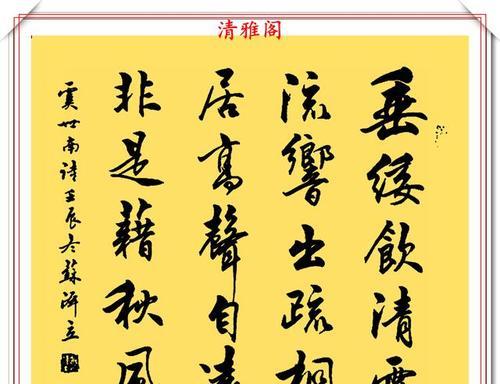 清雅阁
垂緌飲清露
流響出疏桐
居高聲自遠
非是藉秋風
虞世南詩壬辰冬蘇立